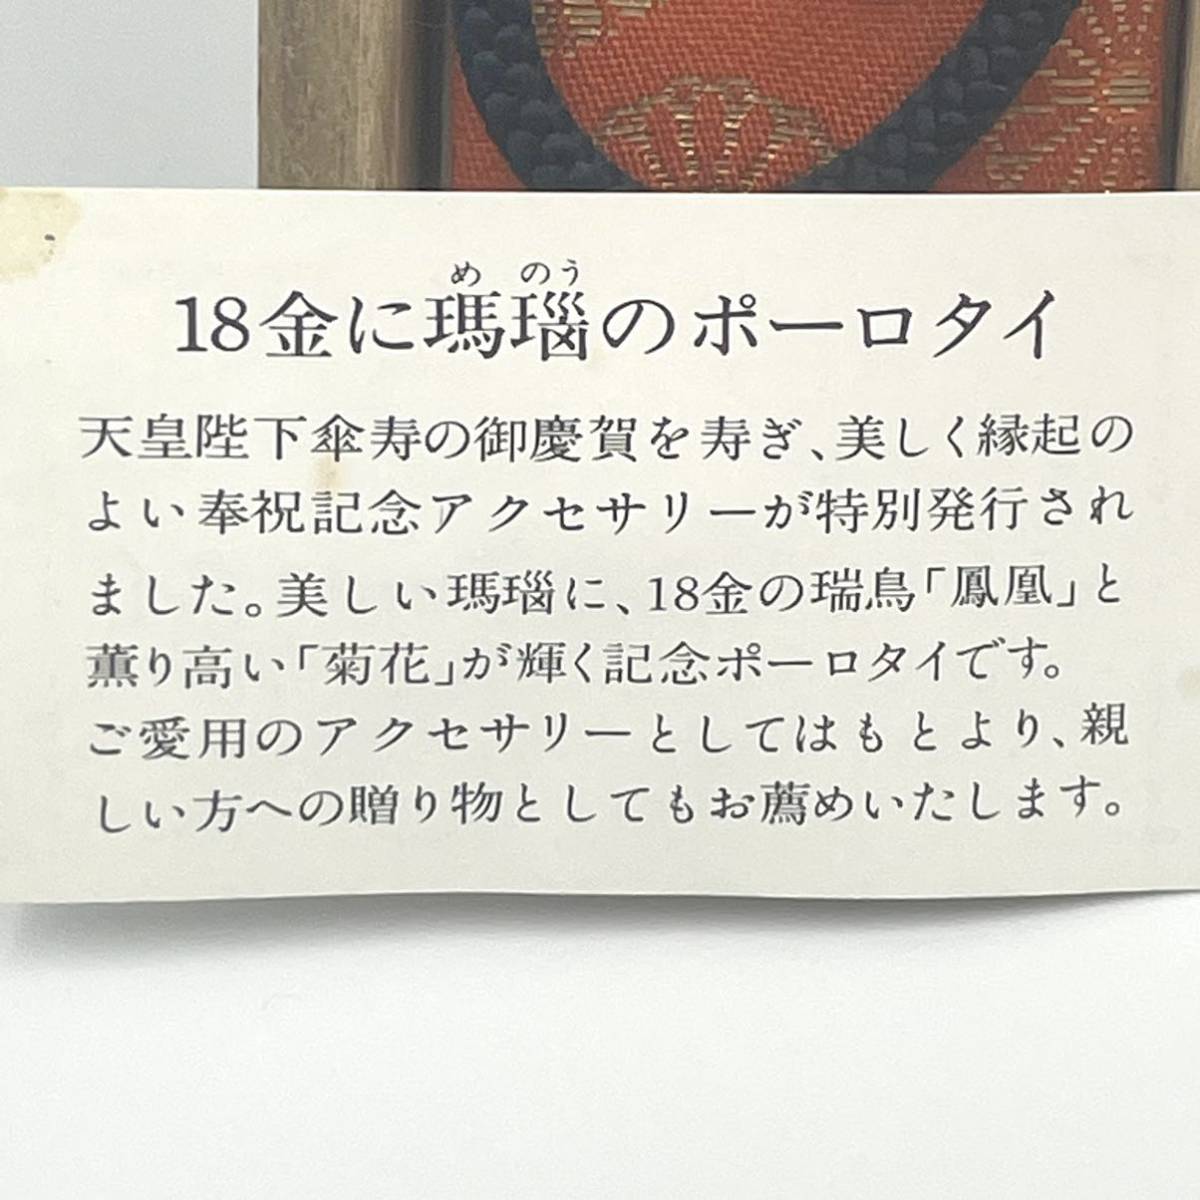 めのう
18金に瑪瑙のポーロタイ
天皇陛下傘寿の御慶賀を寿ぎ、美しく縁起の
よい奉祝記念アクセサリーが特別発行され
ました。美しい瑪瑙に、18金の瑞鳥「鳳凰」と
薫り高い「菊花」が輝く記念ポーロタイです。
ご愛用のアクセサリーとしてはもとより、親
しい方への贈り物としてもお薦めいたします。